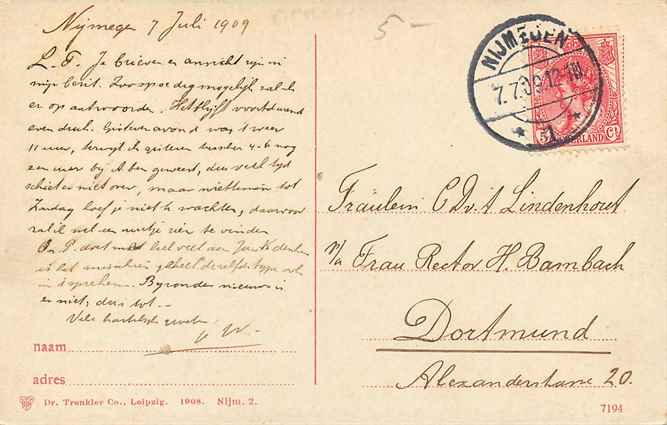 Nijmegen 7 Juli 1909
5-
L. G. Je brieven en ansicht zijn in
mijn bezit. Zoo spoedig mogelijk zal ik
er op antwoorden. Het blijft voortdurend
even druk. Gisteren avond was 't weer
11 uur, terwijl ik gisteren tusschen 4-6 nog
een uur bij A ben geweest, dus veel tijd
schiet er niet over, maar niettemin tot
Zondag hoef je niet te wachten, daarvoor
zal ik wel een uurtje zien te vinden
dat veel aan
is het geheel dezelfde type
in 't spreken. Bijzonder nieuws is
er niet, dus tot.-
Vele hartelijke groeten
je W.-
naam
adres
Dr. Trenkler Co., Leipzig. 1908. Nijm. 2.
NIJMEGEN
7.7.09.12-1N.
* 1 *
5 Ct
NEDERLAND
Fräulein C D v. 't Lindenhout
p/a Frau Rector H. Bambach
Dortmund
Alexanderstrasse 20.
7194